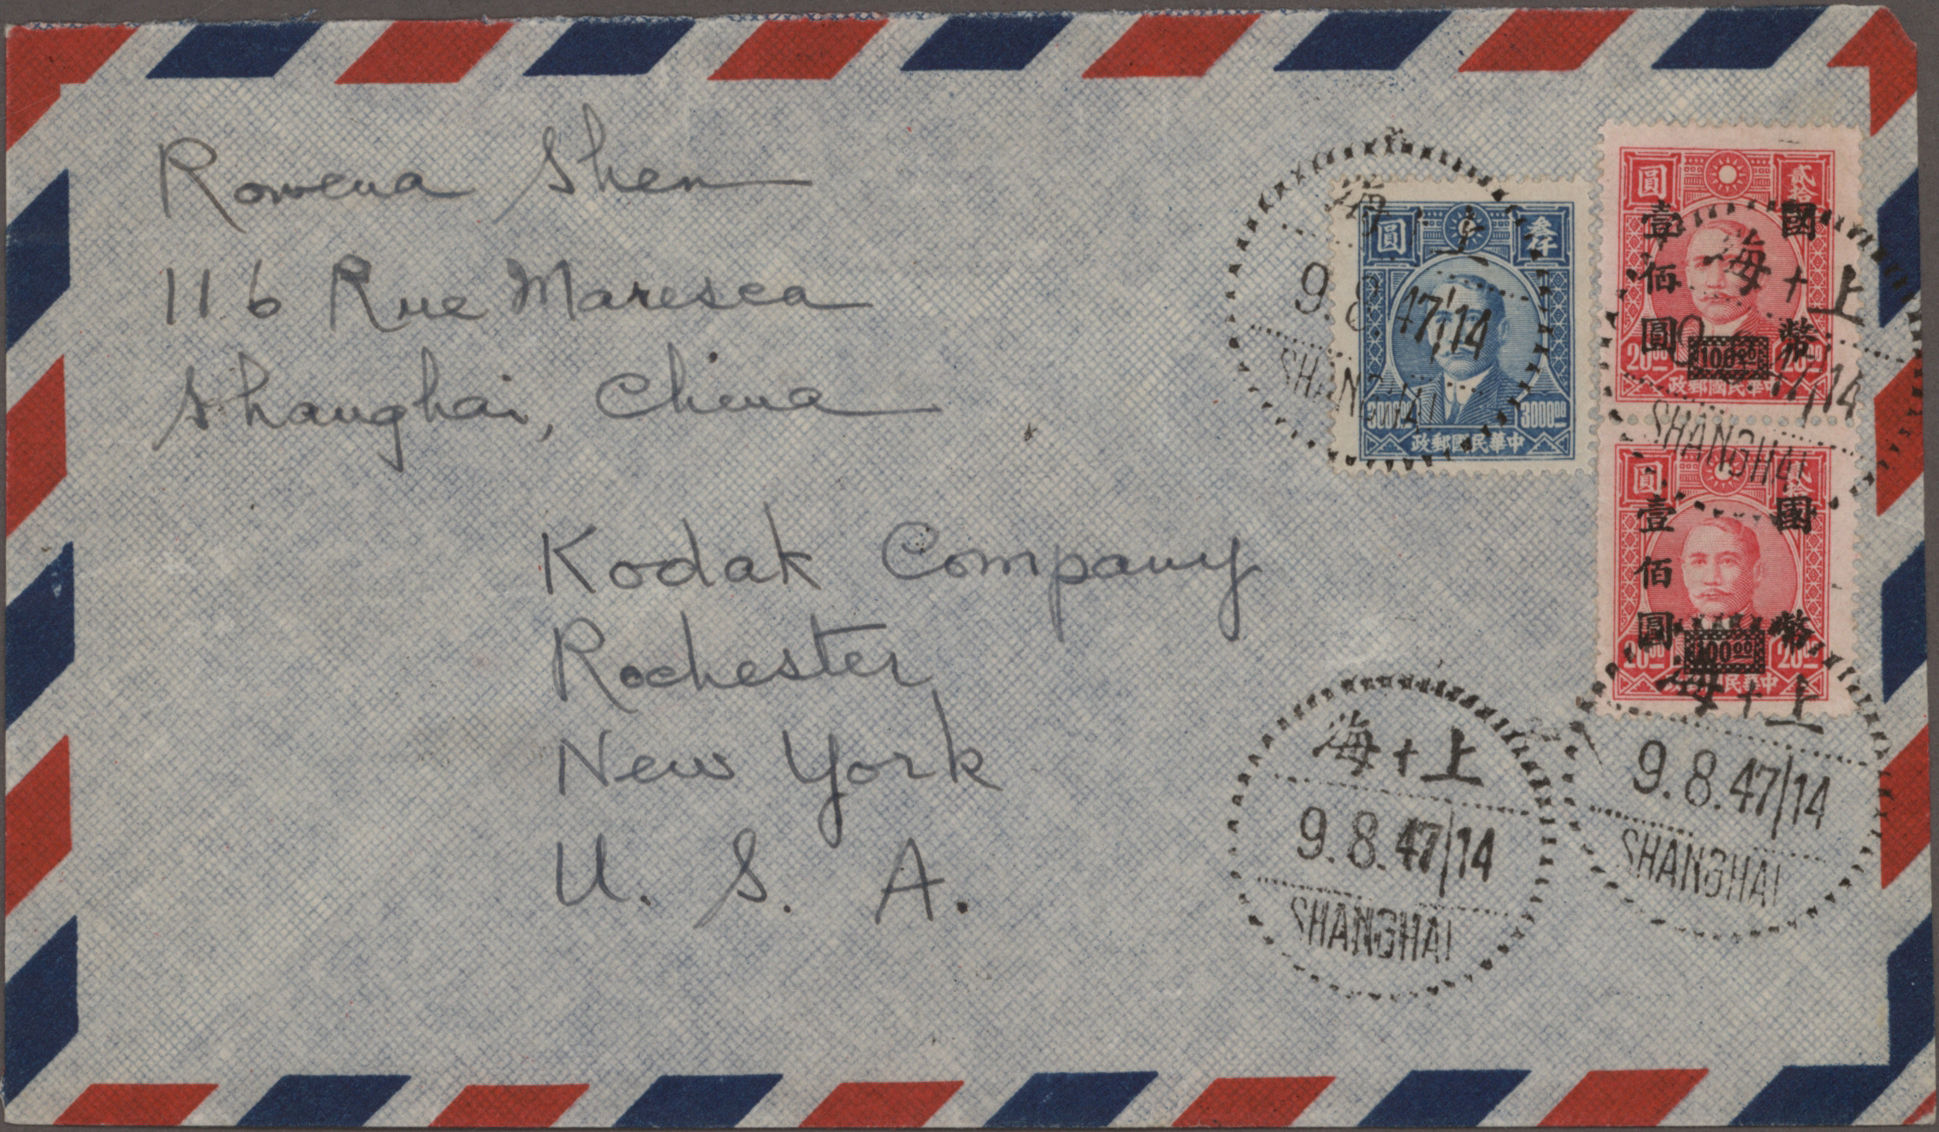 Rowena Shen
116 Rue Maresca
Shanghai, China
Kodak Company
Rochester,
New York
U. S. A.
圓 叁仟
3000.00 3000.00
政郵國民華中
海 上
9.8.47/14
SHANGHAI
圓 貳拾
國幣
壹佰圓
20.00 100.00 20.00
政郵國民華中
海 + 上
47/14
SHANGHAI
圓 貳
國幣
壹佰圓
20.00 100.00 20.00
民華中
海 + 上
9.8.47/14
SHANGHAI
海 + 上
9.8.47/14
SHANGHAI